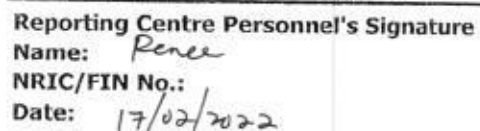 Reporting Centre Personnel's Signature
Name: Renee
NRIC/FIN No.:
Date: 17/02/2022